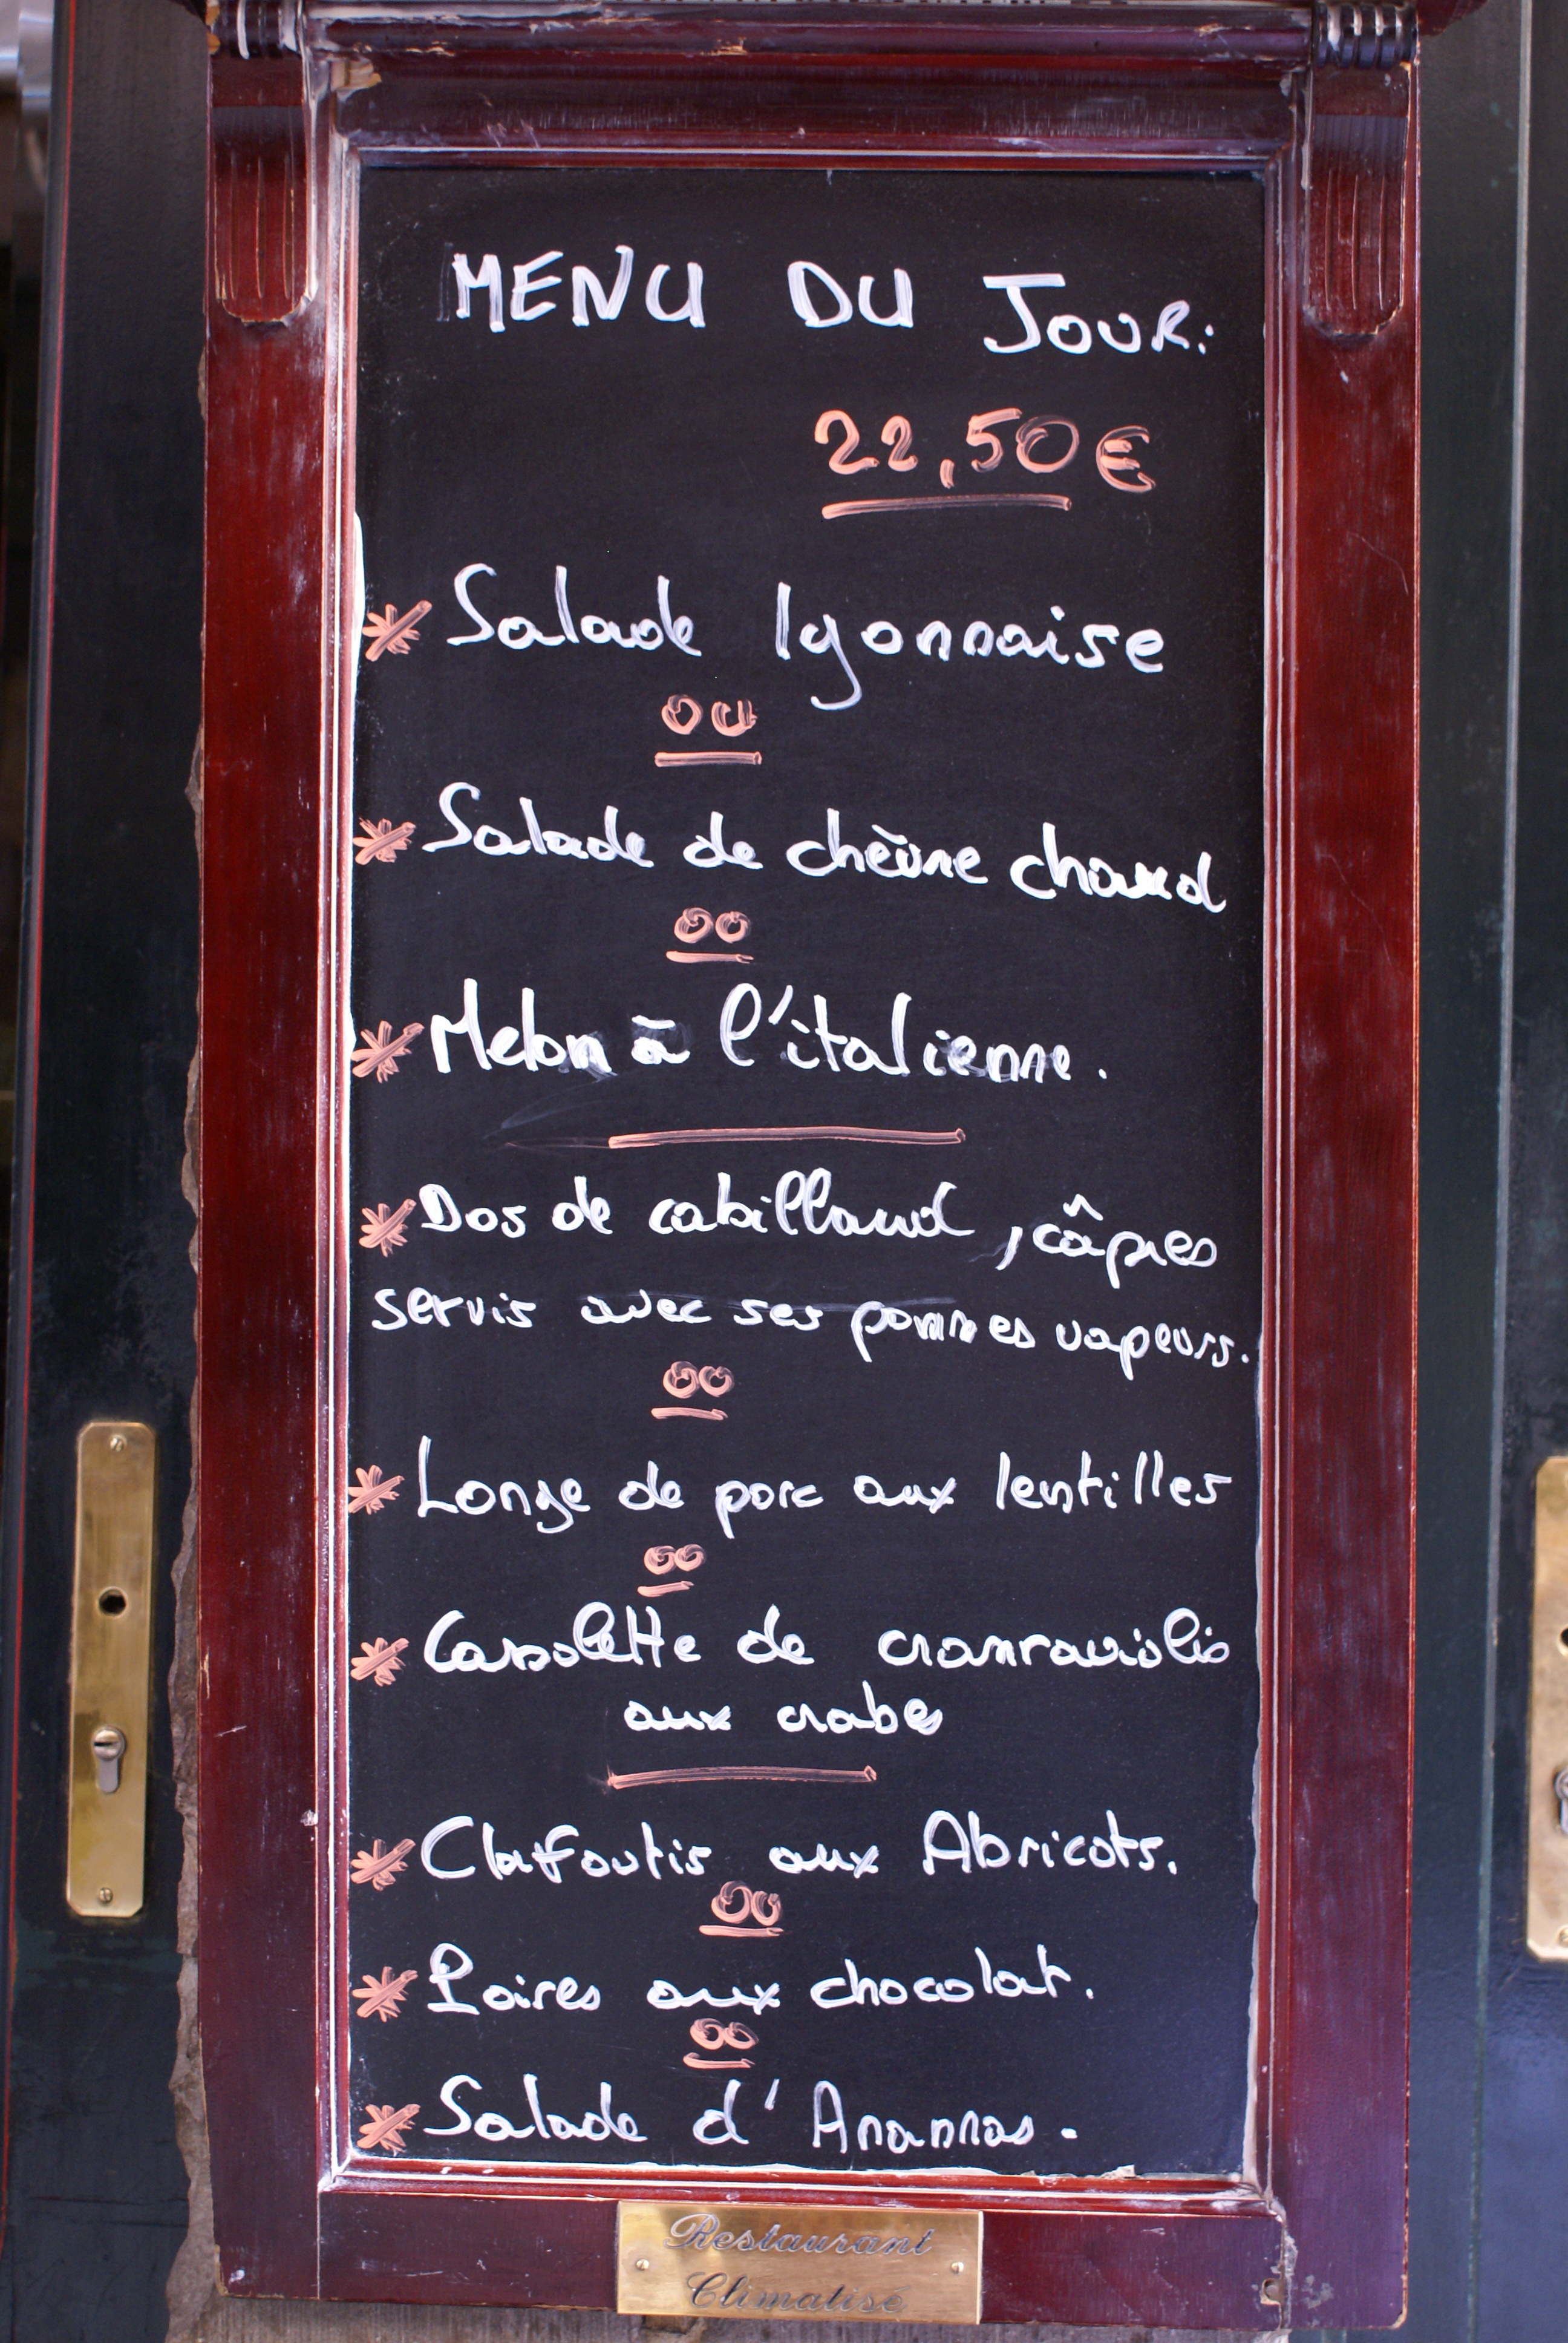 MENU DU JOUR:
22,50€
* Salade lyonnaise
ou
* Salade de chèvre chaud
ou
* Melon à l'italienne.
* Dos de cabillaud, câpres
servis avec ses pommes vapeurs.
ou
* Longe de porc aux lentilles
ou
* Cassolette de cramraviolis
aux crabe
* Clafoutis aux Abricots.
ou
* Poires aux chocolat.
ou
* Salade d'Anannas.
Restaurant
Climatisé